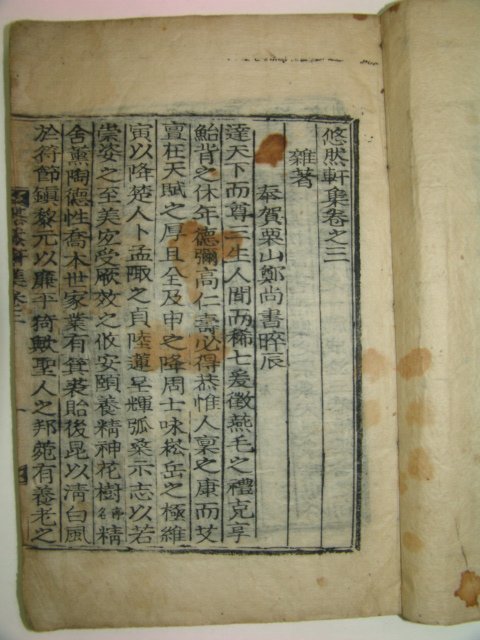 悠然軒集卷之三
雜著
奉賀栗山鄭尙書晬辰
達天下而尊三生人間而稀七爰徵燕毛之禮克享
鮐背之休年德彌高仁壽必得恭惟人稟之康而艾
亶在天賦之厚且全及申之降周士咏崧岳之極維
寅以降楚人卜孟陬之貞陸蓮呈輝弧桑示志以若
崇姿之至美安受厥攸之攸安頤養精神花樹 精
舍薰陶德性喬木世家業有箕裘貽後昆以淸白風
於符節鎭黎元以廉乎猗歟聖人之邦菀有養老之